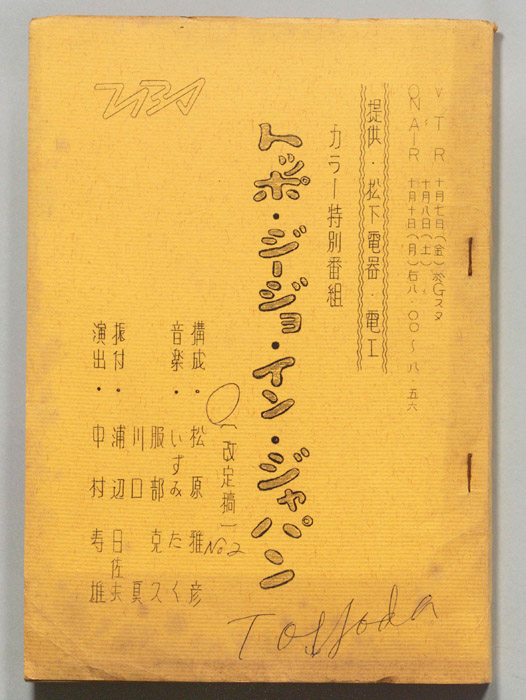 VTR 十月七日(金)於Gスタ
十月八日(土)
ON AIR 十月十日(月)后八・〇〇〜八・五六
提供・松下電器・電工
カラー特別番組
トッポ・ジージョ・イン・ジャパン
(改定稿)
No2
構成・松原雅彦
音楽・いずみたく
服部克久
川口真
振付・浦辺日佐夫
演出・中村寿雄
TBS